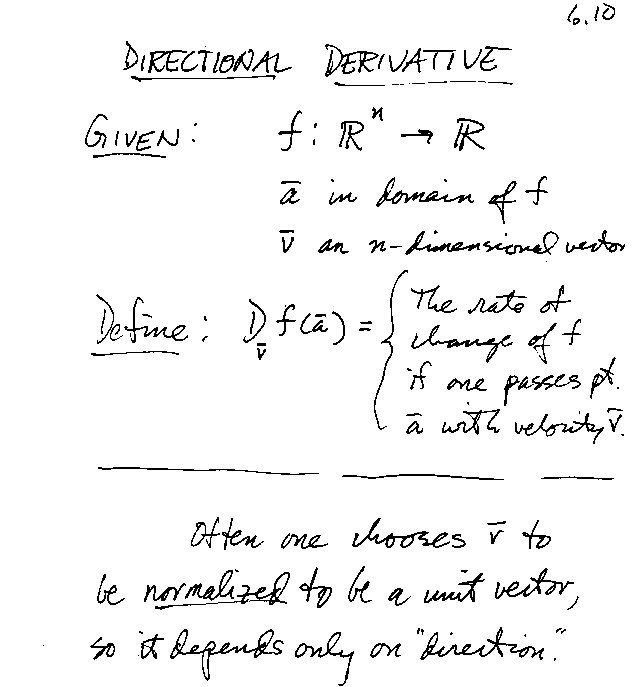 6.10
DIRECTIONAL DERIVATIVE
GIVEN: f: ℝⁿ → ℝ
ā in domain of f
v̄ an n-dimensional vector
Define: D_v̄ f(ā) = { The rate of
change of f
if one passes pt.
ā with velocity v̄.
Often one chooses v̄ to
be normalized to be a unit vector,
so it depends only on "direction."